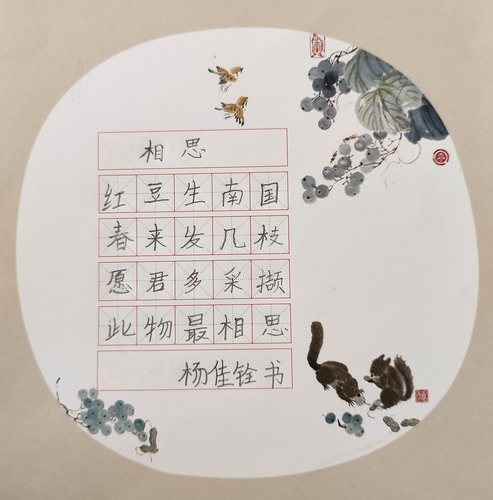 相思
红豆生南国
春来发几枝
愿君多采撷
此物最相思
杨佳铨书